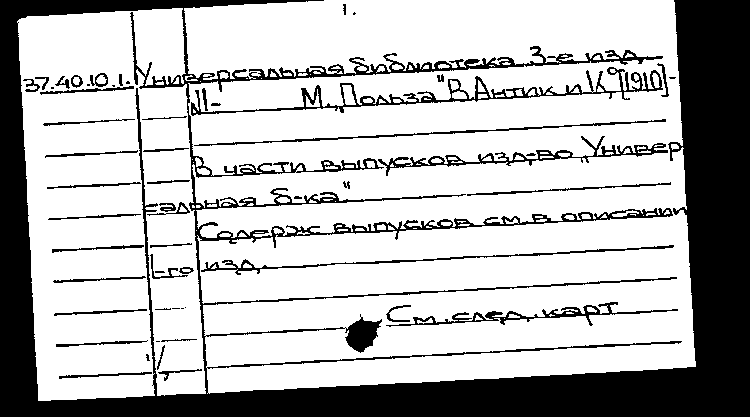 1.
37.40.10.1. Универсальная библиотека 3-е изд.
№1- М., „Польза" В. Антик и К°, [1910]-
В части выпусков изд-во „Универ
сальная б-ка"
Содерж выпусков см. в описании
1-го изд.
См. след. карт